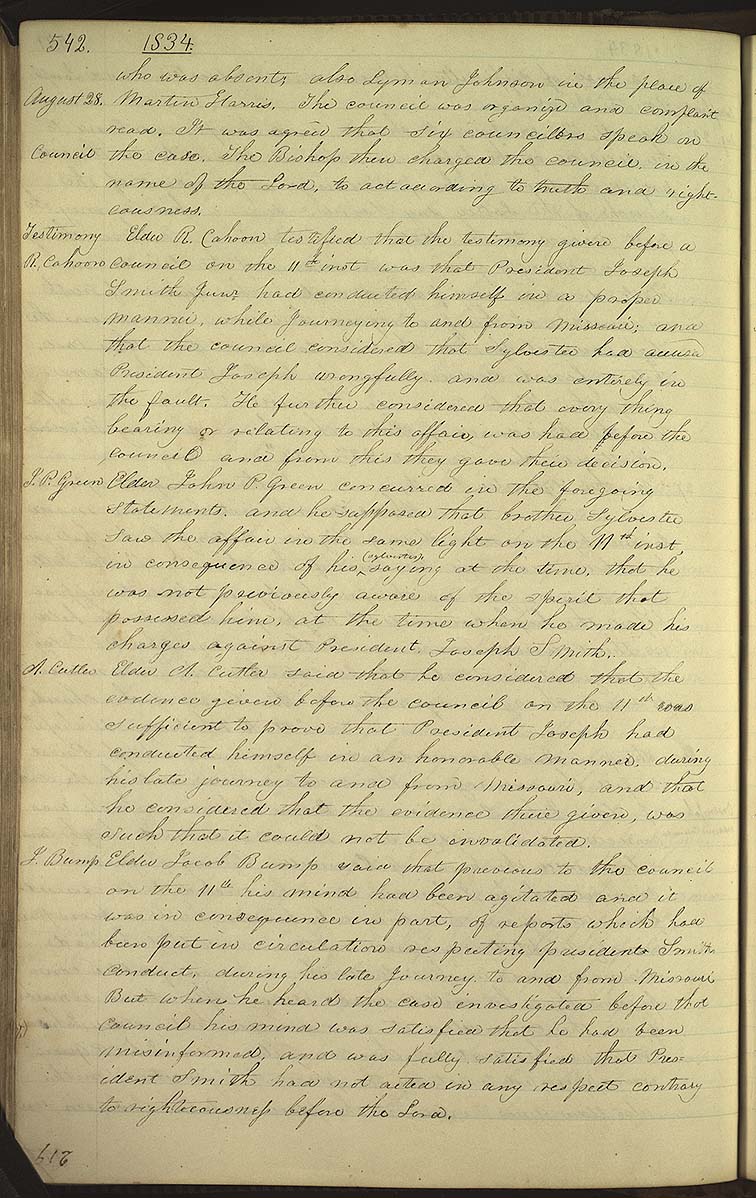 542. 1834.
who was absent; also Lyman Johnson in the place of
August 28. Martin Harris. The council was organize and complaint
read. It was agreed that six councillors speak on
Council the case. The Bishop then charged the council, in the
name of the Lord, to act according to truth and right-
eousness.
Testimony Elder R. Cahoon testified that the testimony given before a
R. Cahoon Council on the 11th inst was that President Joseph
Smith Junr had conducted himself in a proper
manner, while Journeying to and from Missouri; and
that the council considered that Sylvester had accused
President Joseph wrongfully. and was entirely in
the fault. He further considered that every thing
bearing or relating to this affair, was had before the
council and from this they gave their decision.
J. P. Green Elder John P. Green concurred in the foregoing
statements. and he supposed that brother Sylvester
saw the affair in the same light on the 11th inst,
in consequence of his (sylvesters) saying at the time, that he
was not previously aware of the spirit that
possessed him, at the time when he made his
charges against President Joseph Smith.
A. Cutler Elder A. Cutler said that he considered that the
evidence given before the council on the 11th was
sufficient to prove that President Joseph had
conducted himself in an honorable manner. during
his late journey to and from Missouri, and that
he considered that the evidence there given, was
such that it could not be invalidated.
J. Bump Elder Jacob Bump said that previous to the council
on the 11th his mind had been agitated and it
was in consequence in part, of reports which had
been put in circulation respecting president Smiths
conduct, during his late Journey to and from Missouri
But when he heard the case investigated before that
council his mind was satisfied that he had been
misinformed, and was fully satisfied that Pres-
ident Smith had not acted in any respect contrary
to righteousness before the Lord.